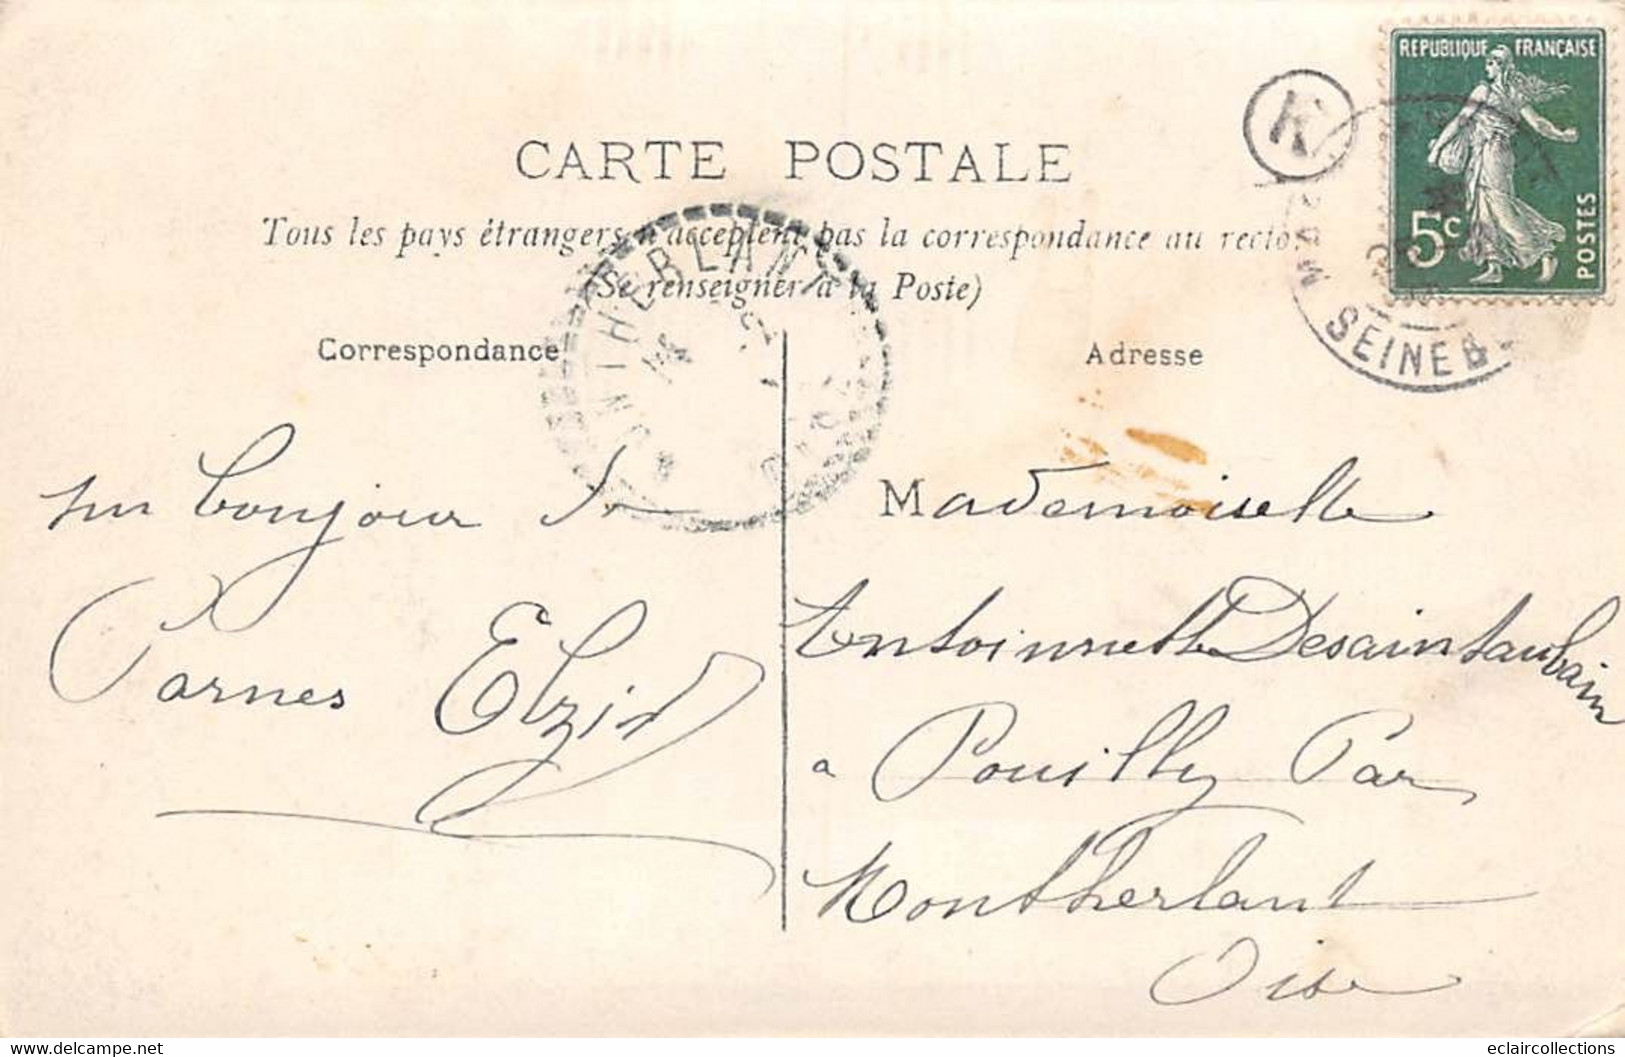 REPUBLIQUE FRANÇAISE
5c
POSTES
K
SEINE
CARTE POSTALE
Tous les pays étrangers n'acceptent pas la correspondance au recto.
(Se renseigner à la Poste)
MONTHERLANT
OISE
Correspondance
Adresse
un bonjour de
Parnes Elzir
Mademoiselle
Antoinnette Desaintaubain
a Pouilly Par
Montherlant
Oise
www.delcampe.net
eclaircollections